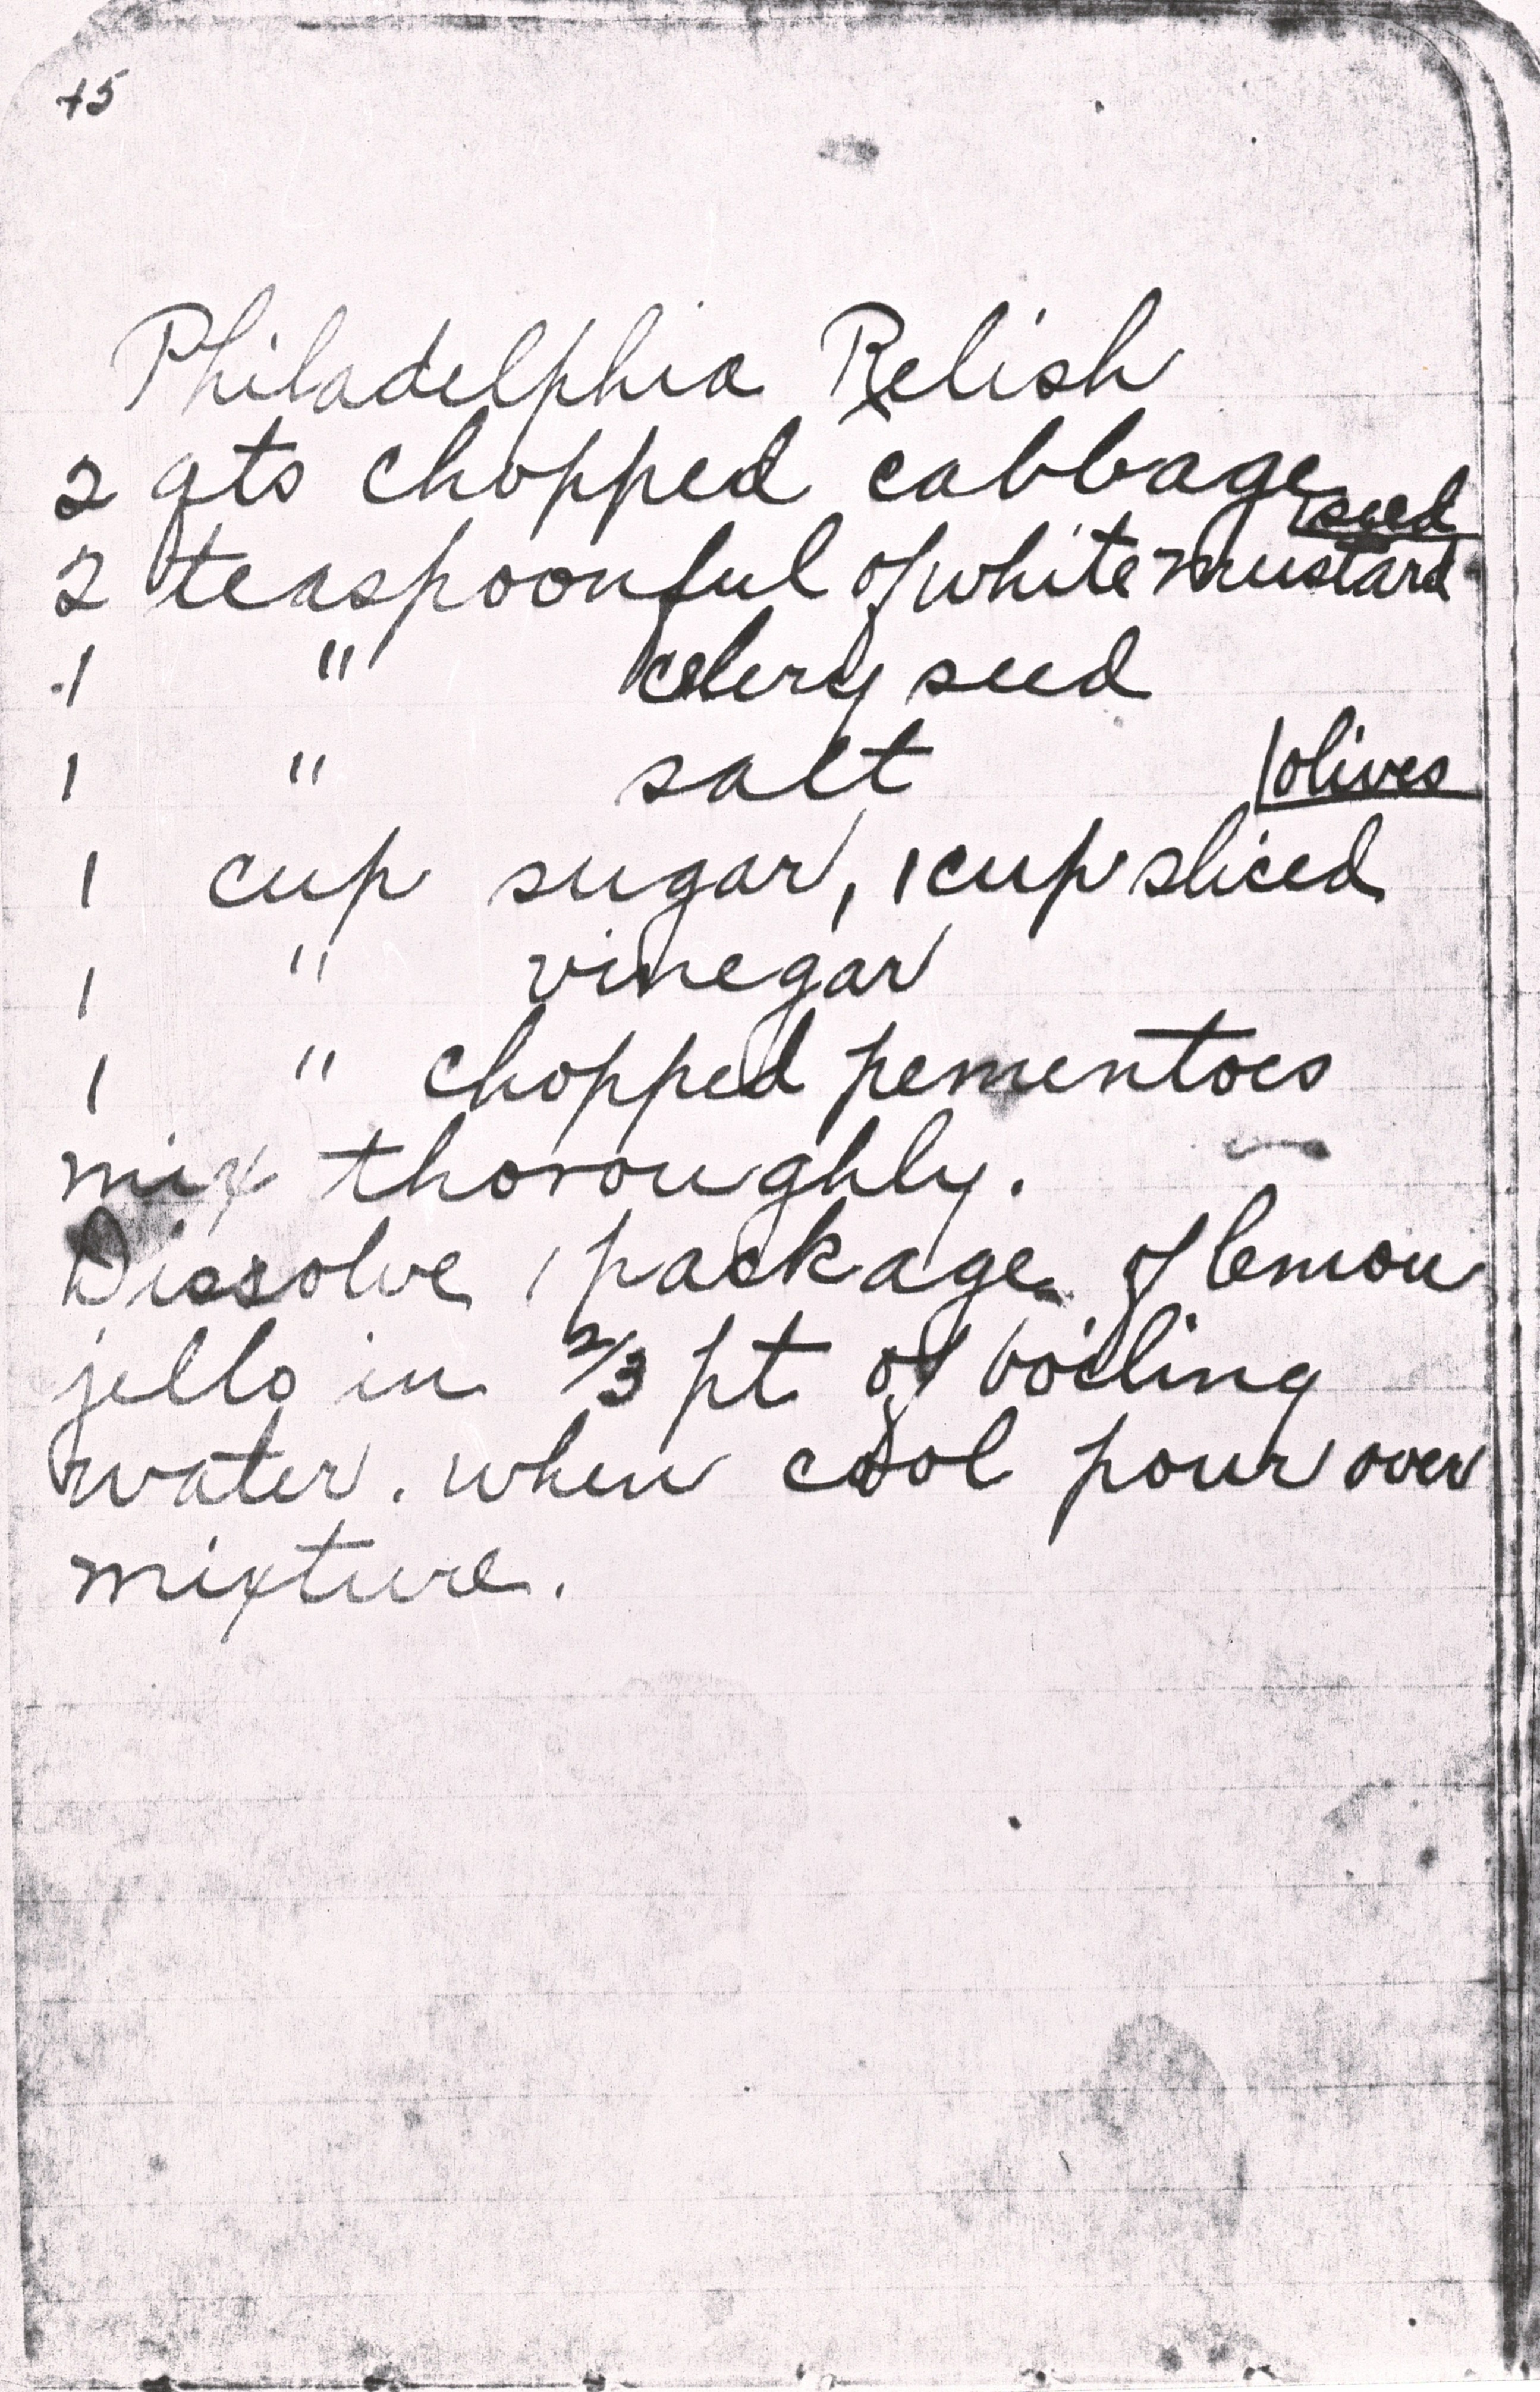 45
Philadelphia Relish
2 qts chopped cabbage
2 teaspoonful of white mustard seed
1 " celery seed
1 " salt
1 cup sugar, 1 cup sliced olives
1 " vinegar
1 " chopped pementoes
mix thoroughly.
Dissolve 1 package of lemon
jello in 2/3 pt of boiling
water. when cool pour over
mixture.